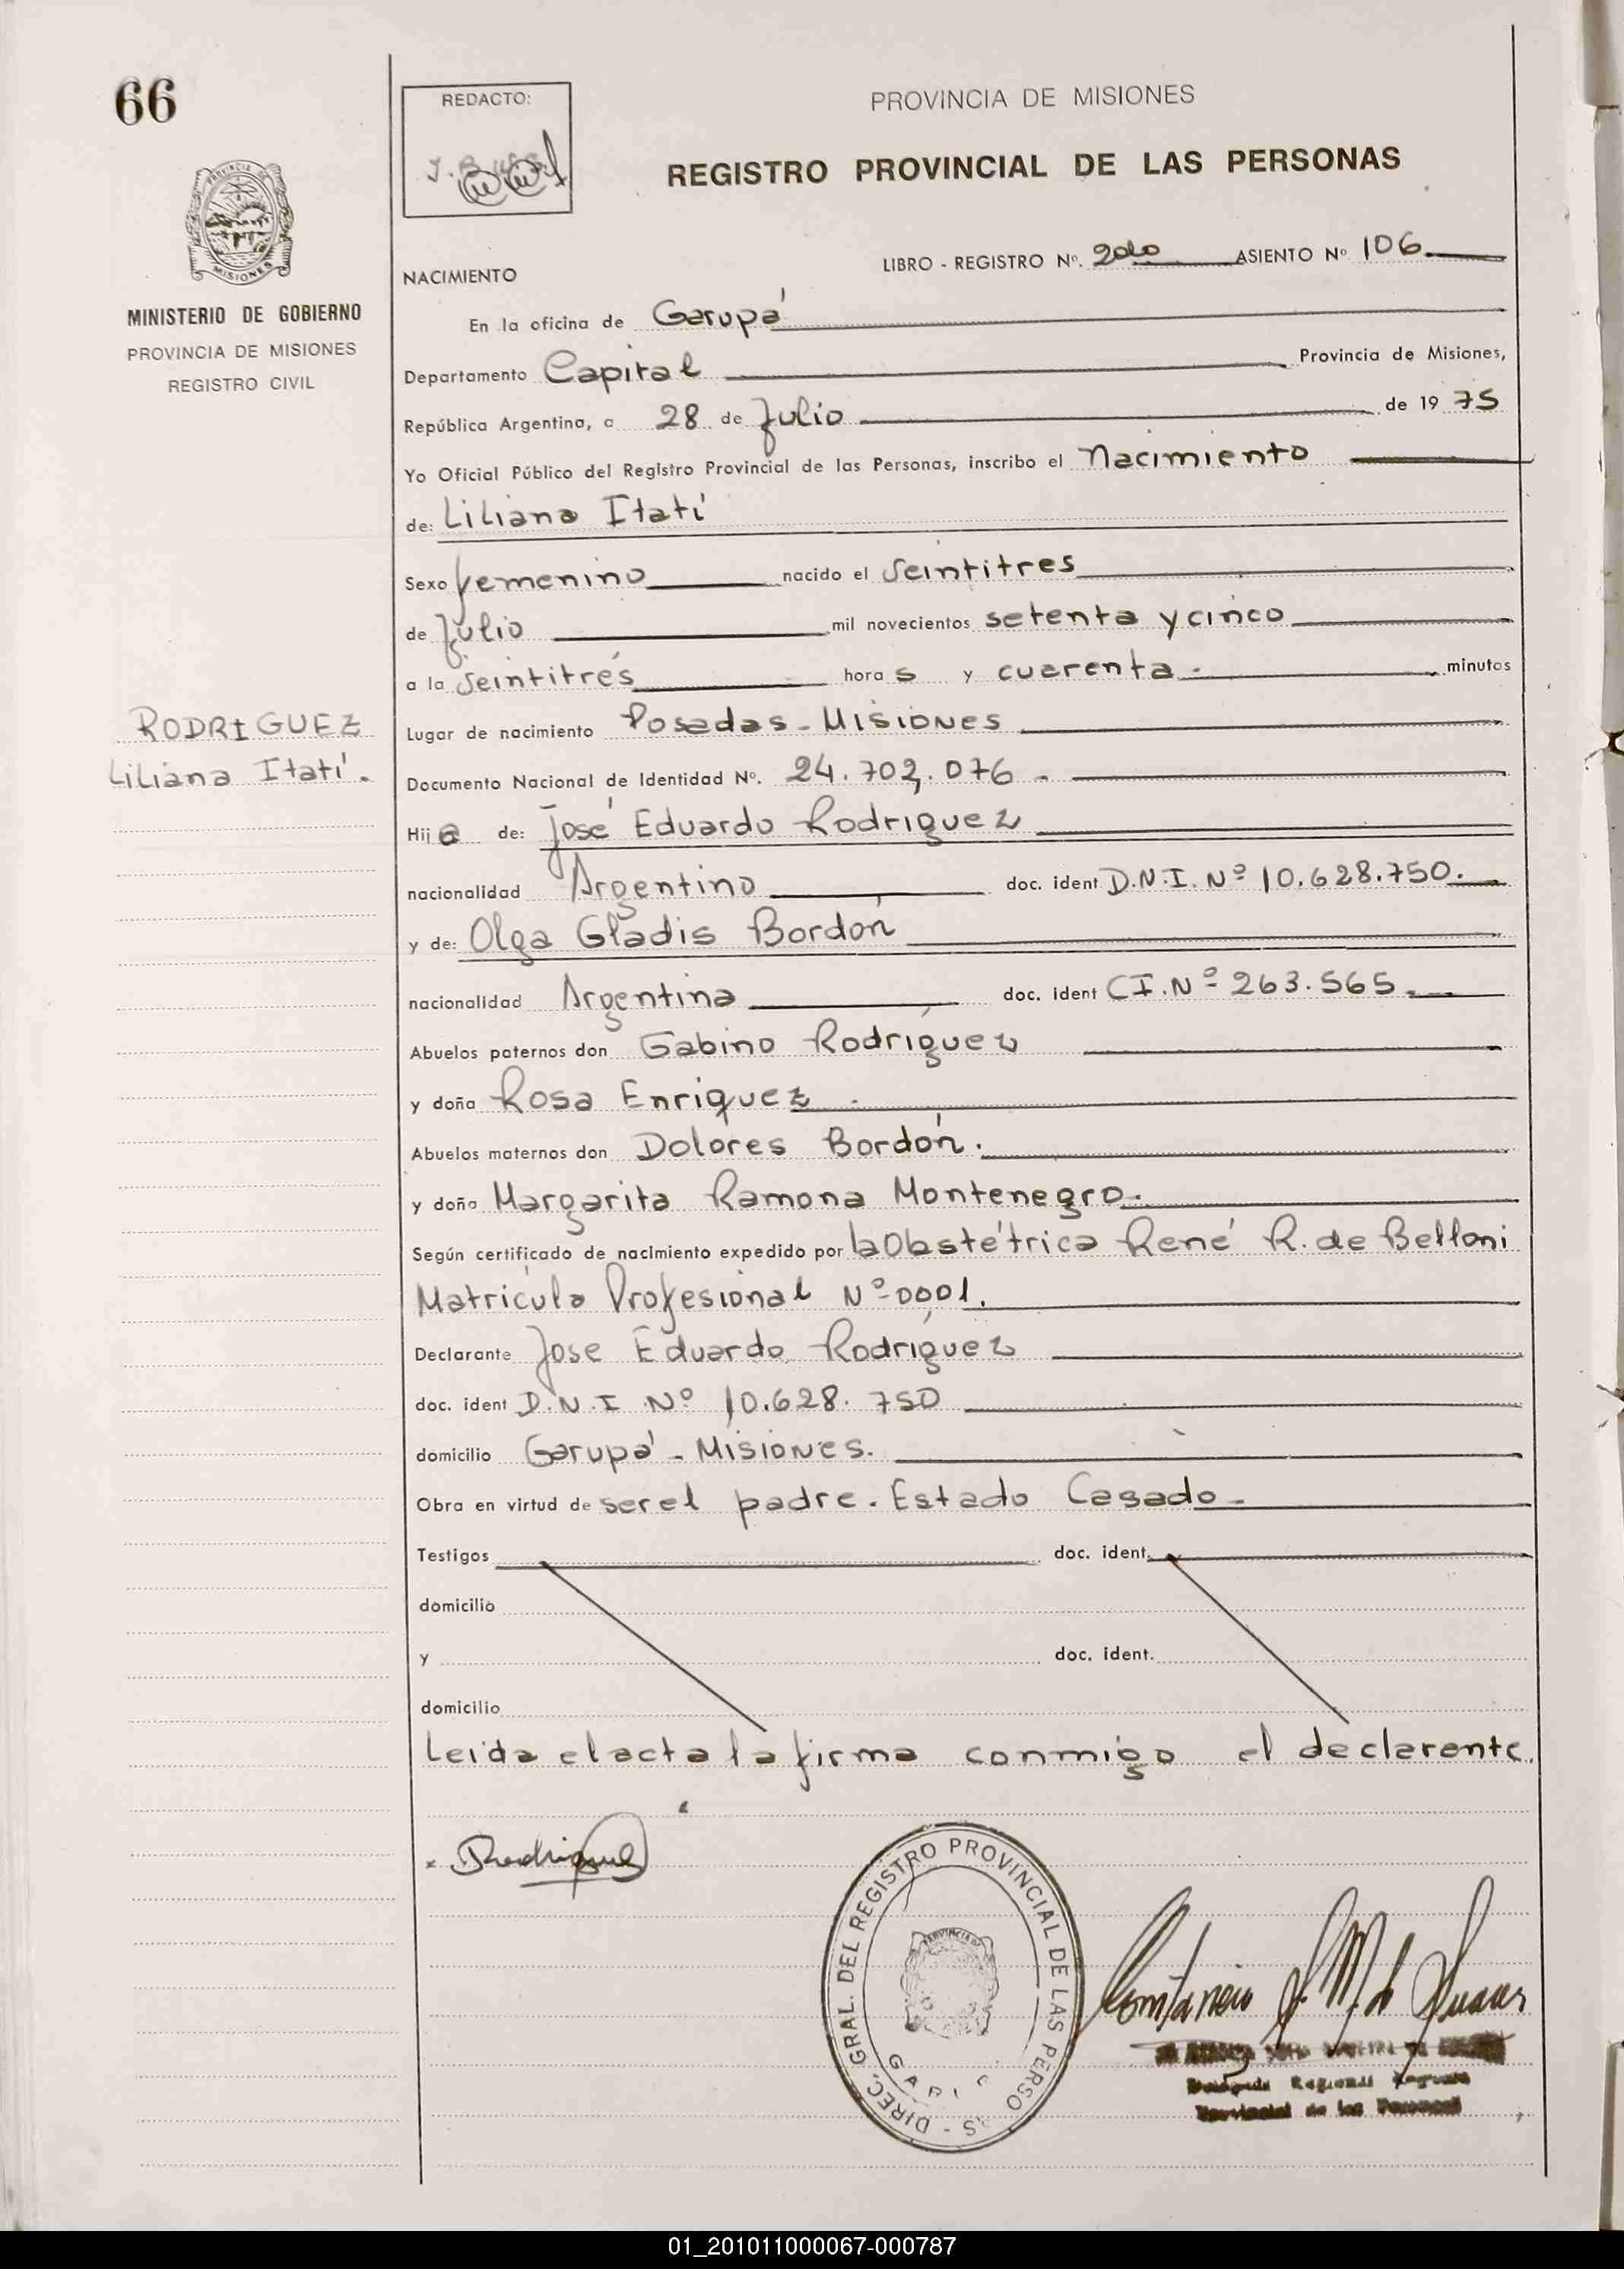 66
REDACTO:
PROVINCIA DE MISIONES
REGISTRO PROVINCIAL DE LAS PERSONAS
PROVINCIA DE MISIONES
MINISTERIO DE GOBIERNO
PROVINCIA DE MISIONES
REGISTRO CIVIL
LIBRO - REGISTRO Nº. ASIENTO Nº 106
NACIMIENTO
En la oficina de Garupá
Departamento Capital Provincia de Misiones,
República Argentina, a 28 de Julio de 1975
Yo Oficial Público del Registro Provincial de las Personas, inscribo el Nacimiento
de: Liliana Itatí
Sexo femenino nacido el Veintitres
de Julio mil novecientos setenta y cinco
a la Veintitrés hora s y cuarenta. minutos
Lugar de nacimiento Posadas - Misiones
RODRIGUEZ
Liliana Itatí.
Documento Nacional de Identidad Nº. 24.702.076 -
Hij a de: José Eduardo Rodríguez
nacionalidad Argentino doc. ident D.N.I. Nº 10.628.750.
y de: Olga Gladis Bordón
nacionalidad Argentina doc. ident CI. Nº 263.565.
Abuelos paternos don Gabino Rodríguez
y doña Rosa Enriquez.
Abuelos maternos don Dolores Bordón.
y doña Margarita Ramona Montenegro.
Según certificado de nacimiento expedido por la Obstétrica René R. de Belloni
Matrícula Profesional Nº 0001.
Declarante Jose Eduardo Rodríguez
doc. ident D.N.I Nº 10.628.750
domicilio Garupá - Misiones.
Obra en virtud de ser el padre. Estado Casado -
Testigos doc. ident.
domicilio
y doc. ident.
domicilio
Leída el acta la firma conmigo el declarante.
Rodriguez
DIREC. GRAL. DEL REGISTRO PROVINCIAL DE LAS
Regional
Provincial de las Personas
01_201011000067-000787